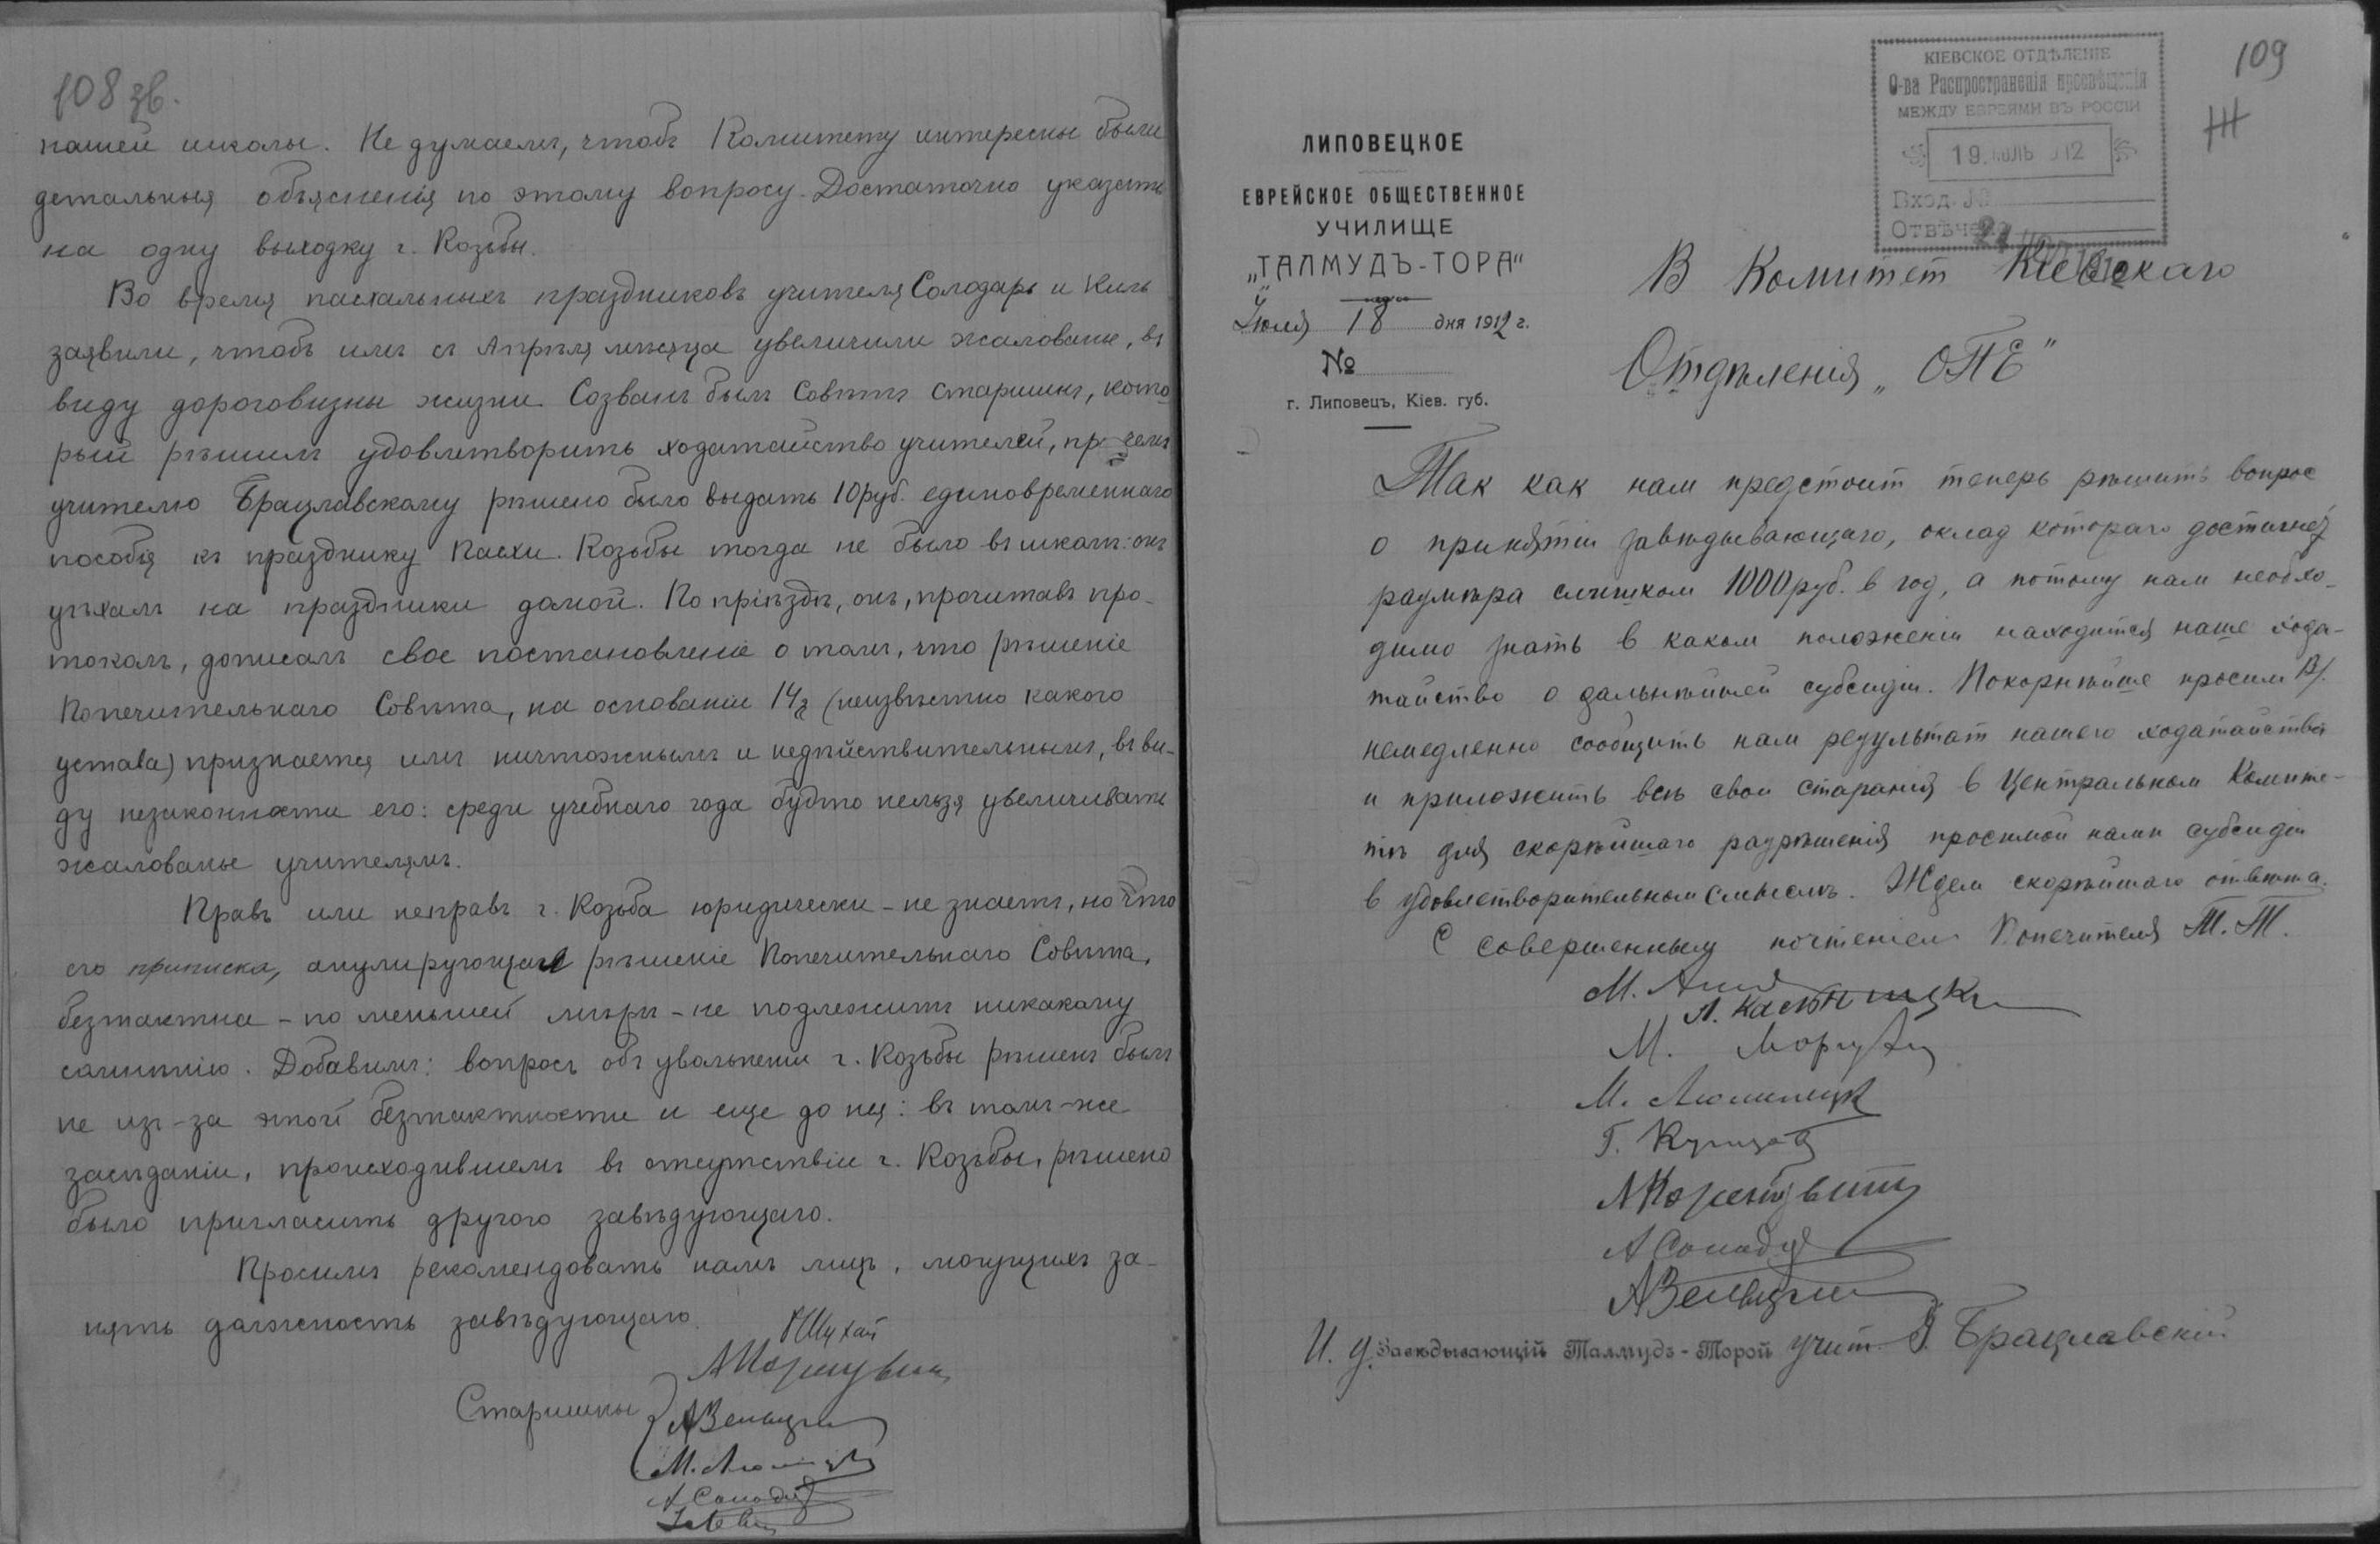 108 зв.
нашей школы. Не думаемъ, чтобъ Комитету интересны были
детальныя объясненія по этому вопросу. Достаточно указать
на одну выходку г. Козьбы.
Во время пасхальныхъ праздниковъ учителя Солодарь и Киль
заявили, чтобъ имъ съ Апрѣля мѣсяца увеличили жалованье, въ
виду дороговизны жизни. Созванъ былъ Совѣтъ старшинъ, кото
рый рѣшилъ удовлетворить ходатайство учителей, при чемъ
учителю Брацлавскому рѣшено было выдать 10 руб. единовременнаго
пособія къ празднику Пасхи. Козьбы тогда не было въ школѣ: онъ
уѣхалъ на праздники домой. По пріѣздѣ, онъ, прочитавъ про-
токолъ, дописалъ свое постановленіе о томъ, что рѣшеніе
Попечительнаго Совѣта, на основаніи 14 § (неизвѣстно какого
устава) признается имъ ничтожнымъ и недѣйствительнымъ, въ ви-
ду незаконности его: среди учебнаго года будто нельзя увеличивать
жалованье учителямъ.
Правъ или неправъ г. Козьба юридически - не знаемъ, но что
его приписка, анулирующая рѣшеніе Попечительнаго Совѣта,
безтактна - по меньшей мѣрѣ - не подлежитъ никакому
сомнѣнію. Добавимъ: вопросъ объ увольненіи г. Козьбы рѣшенъ былъ
не изъ-за этой безтактности и еще до нея: въ томъ-же
засѣданіи, происходившемъ въ отсутствіи г. Козьбы, рѣшено
было пригласить другого завѣдующаго.
Просимъ рекомендовать намъ лицъ, могущихъ за-
нять должность завѣдующаго.
Старшины
109
КІЕВСКОЕ ОТДѢЛЕНІЕ
О-ва Распространенія просвѣщенія
МЕЖДУ ЕВРЕЯМИ ВЪ РОССІИ
19. ІЮЛЬ 912
Вход. №
Отвѣчено
ЛИПОВЕЦКОЕ
ЕВРЕЙСКОЕ ОБЩЕСТВЕННОЕ
УЧИЛИЩЕ
„ТАЛМУДЪ-ТОРА"
Іюля 18 дня 1912 г.
№
г. Липовецъ, Кіев. губ.
В Комитет Кіевскаго
Отдѣленія „ОПЕ"
Так как нам предстоит теперь рѣшить вопрос
о принятіи завѣдывающаго, оклад котораго достигнет
размѣра слишком 1000 руб. в год, а потому нам необхо-
димо знать в каком положеніи находится наше хода-
тайство о дальнѣйшей субсидіи. Покорнѣйше просим В/.
немедленно сообщить нам результат нашего ходатайства
и приложить всѣ свои старанія в Центральном Комите-
тѣ для скорѣйшаго разрѣшенія просимой нами субсидіи
в удовлетворительном смыслѣ. Ждем скорѣйшаго отвѣта.
С совершенным почтеніем Попечителя Т. Т.
И. д. Завѣдывающій Талмудъ-Торой учит. Брацлавскій